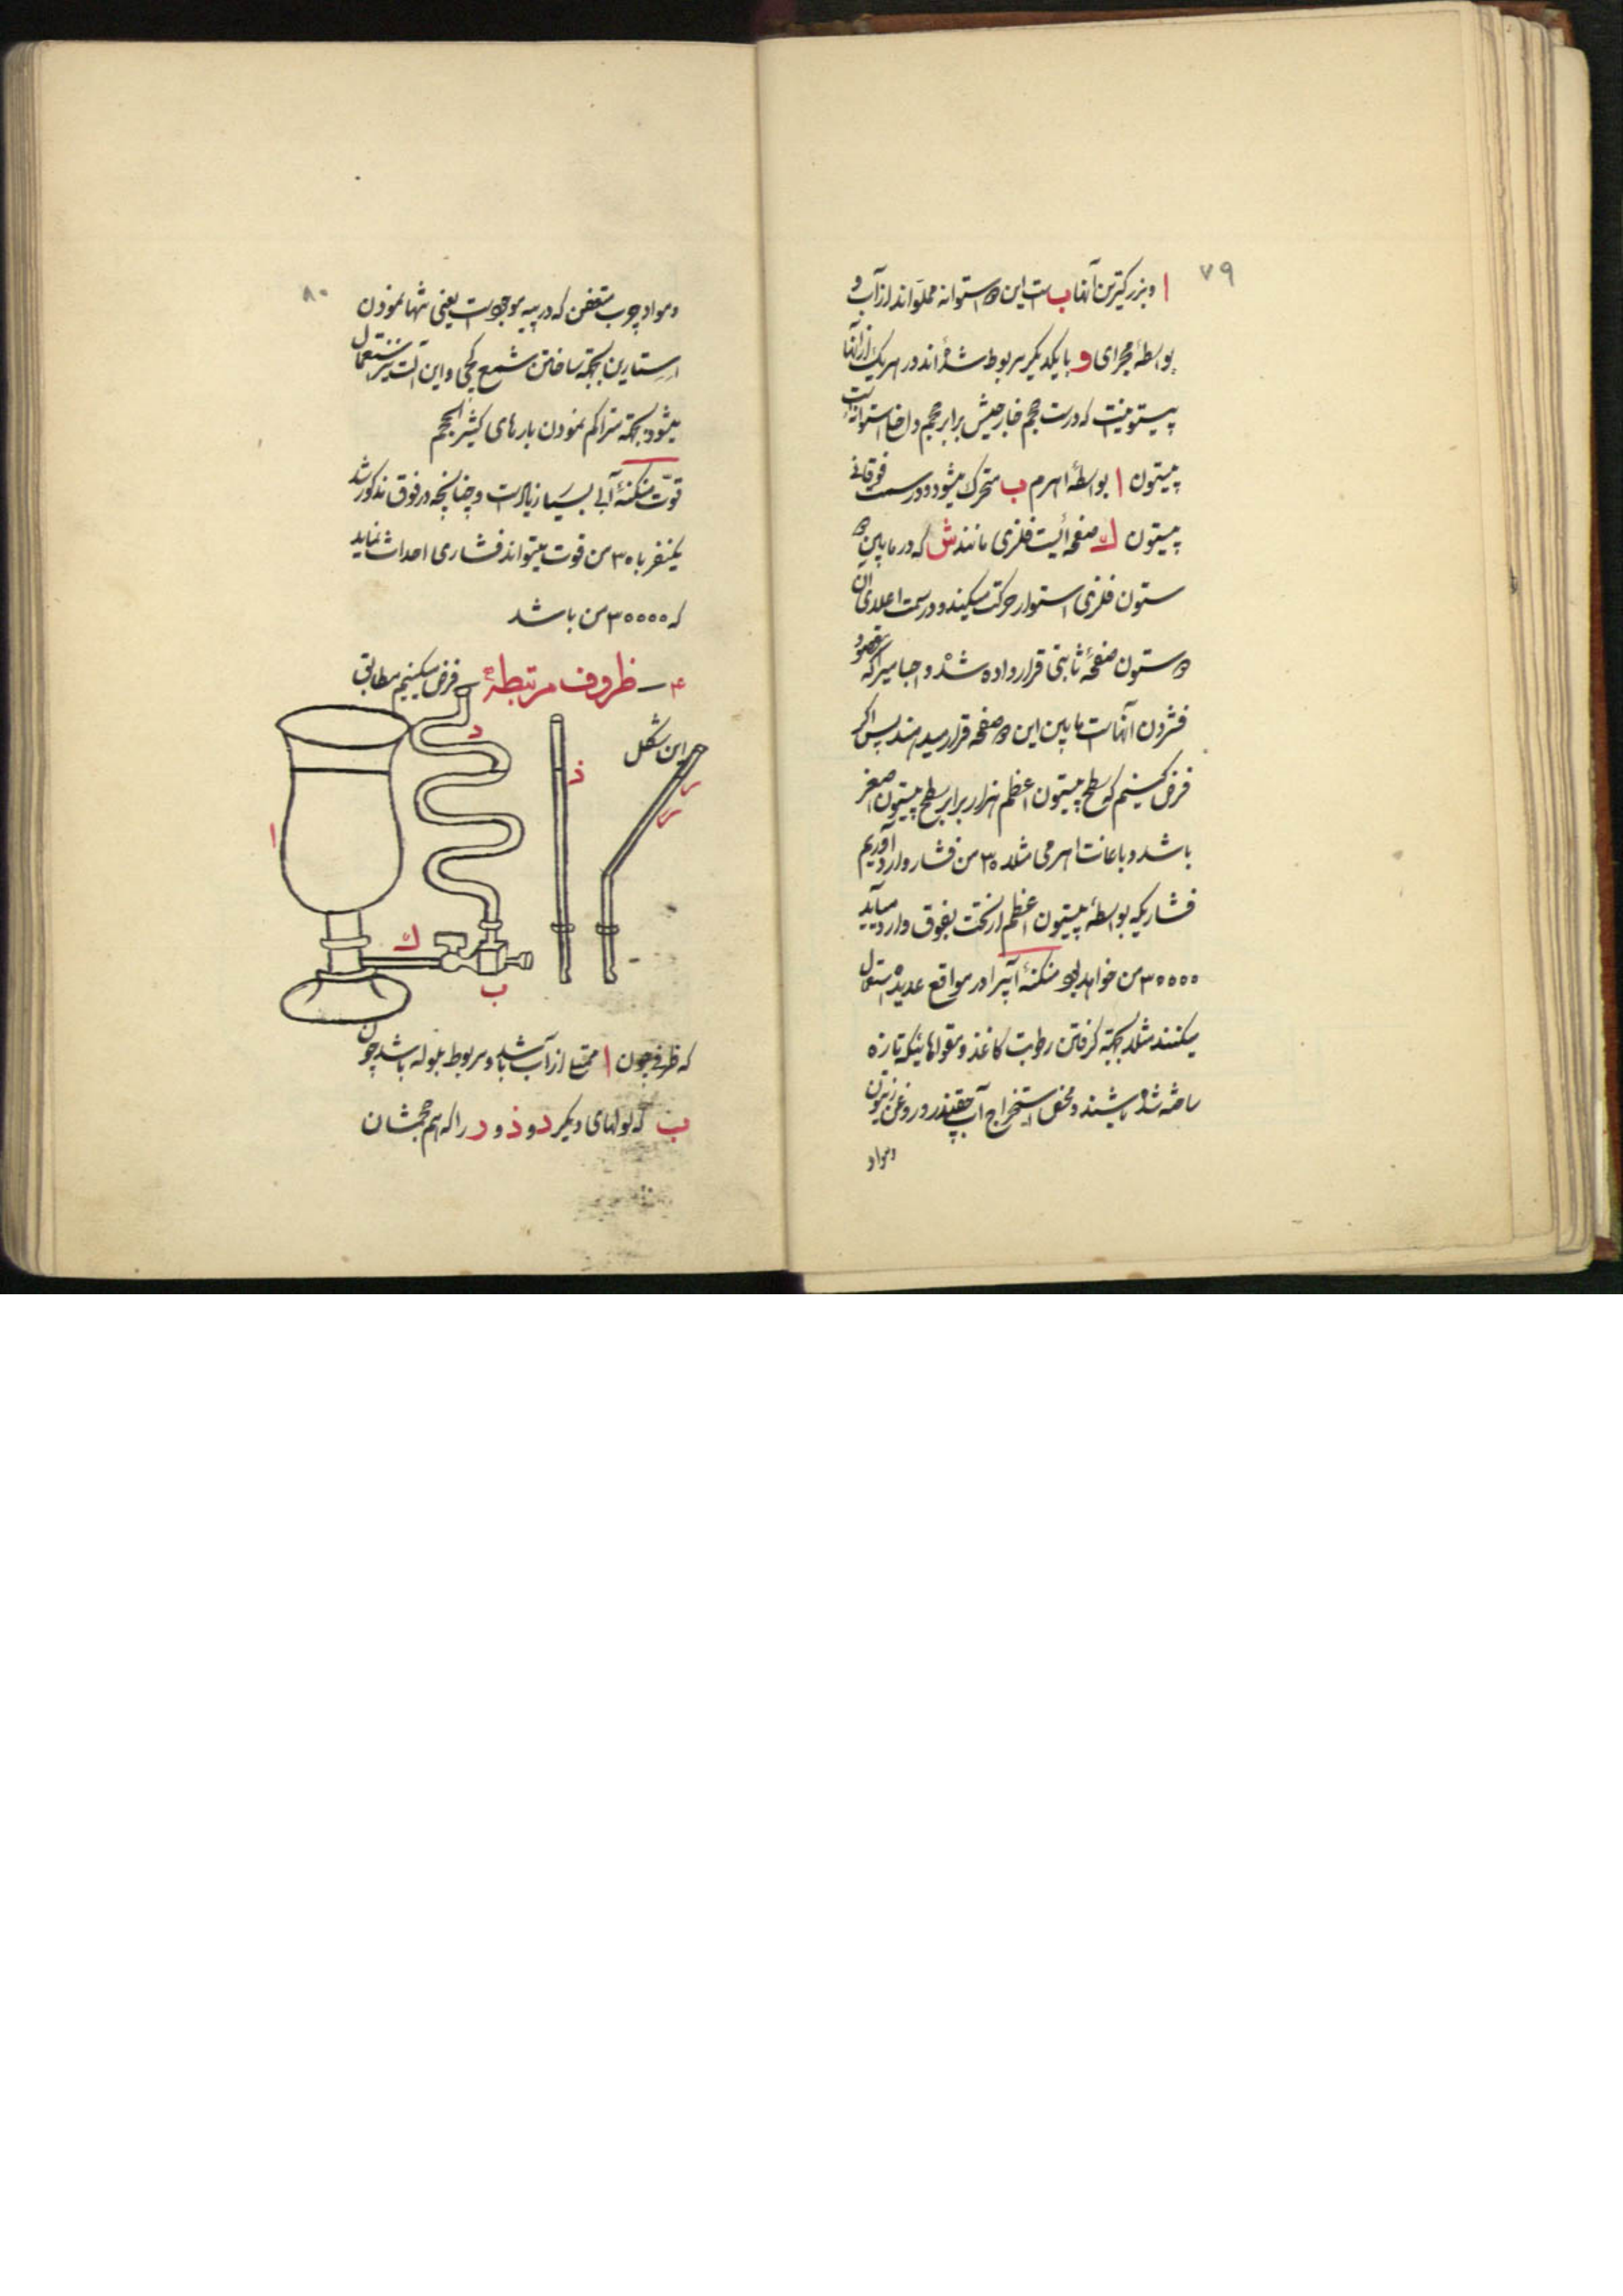 ۷۹
ا و بزرگترین آنها ب است این دو استوانه مملو اند از آب و
بواسطهٔ مجرای و با یکدیگر مربوط شده‌اند در هر یک از آنها
پیستونیست که درست حجم خارجیش برابر حجم داخل استوانه است
پیستون ا بواسطهٔ اهرم ب متحرک میشود و در سمت فوقانی
پیستون ک صفحه‌ائیست فلزی مانند ش که در مابین دو
ستون فلزی استوار حرکت میکند و در سمت اعلای آن
دو ستون صفحهٔ ثابتی قرار داده شده و اجسامیرا که مقصود
فشردن آنهاست مابین این دو صفحه قرار میدهند پس اگر
فرض کنیم که سطح پیستون اعظم هزار برابر سطح پیستون اصغر
باشد و باعانت اهرمی مثلا ۳۰ من فشار وارد آوریم
فشاریکه بواسطهٔ پیستون اعظم از تحت بفوق وارد میآید
۳۰۰۰۰ من خواهد بود منگنهٔ آبیرا در مواقع عدیده استعمال
میکنند مثلا بجهة گرفتن رطوبت کاغذ و مقواهائیکه تازه
ساخته شده باشند و محض استخراج آب چقندر و روغن زیتون
و مواد
۸۰
و مواد چرب متعفن که در پیه موجود است یعنی تنها نمودن
استارین بجهة ساختن شمع گچی و این آلت نیز استعمال
میشود بجهة متراکم نمودن بارهای کثیرالحجم
قوّت منگنهٔ آبی بسیار زیاد است و چنانچه در فوق مذکور شد
یکنفر با ۳۰ من قوت میتواند فشاری احداث نماید
که ۳۰۰۰۰ من باشد
۴ ـ ظروف مرتبطهٔ ـ فرض میکنیم مطابق
این شکل
د
ذ
ر
ر
ا
ک
ب
که ظرفی چون ا ممتلی از آب باشد و مربوط بلوله باشد چون
ب که لولهای دیگر د و ذ و ر را که هم حجمشان